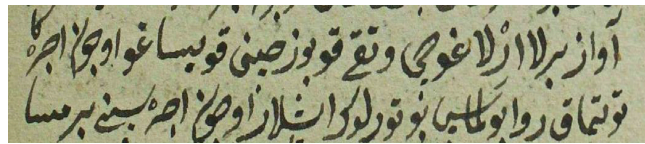 آواز برلا ارلاغوجی و تقی قوبوزچینی قویساغو اوچون اجره
توتماق روا بولماس بو تورلوك ایشلار اوچون اجره سینی برمسا